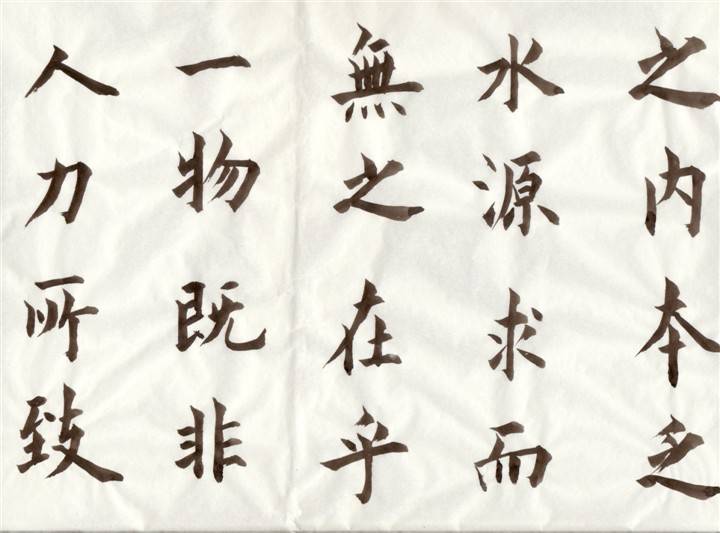 之内本乏
水源求而
無之在乎
一物既非
人力所致